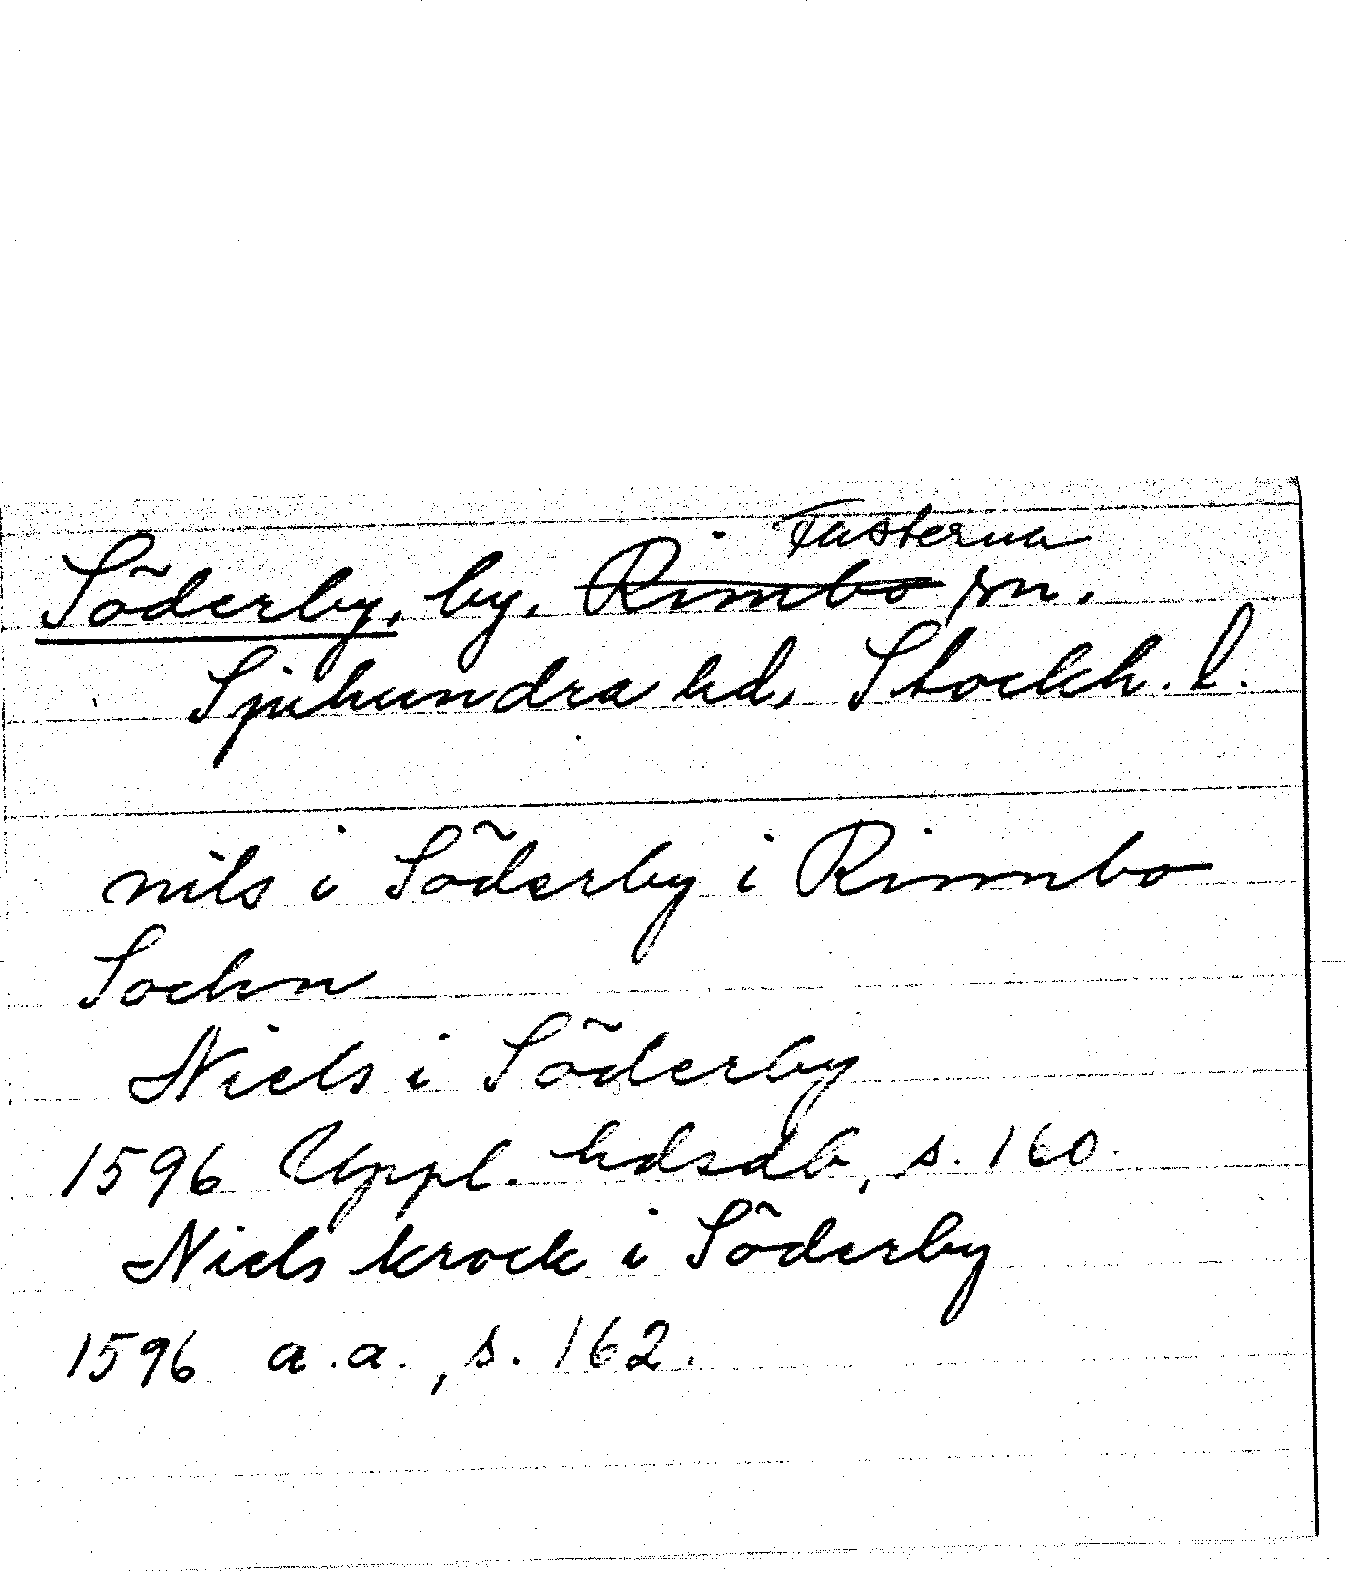 Fasterna
Söderby, by, Rimbo sn.
Sjuhundra hd, Stockh. l.
nils i Söderby i Rimnbo
Sochn
Niels i Söderby
1596 Uppl. hdsdb, s. 160.
Niels krock i Söderby
1596 a.a., s. 162.